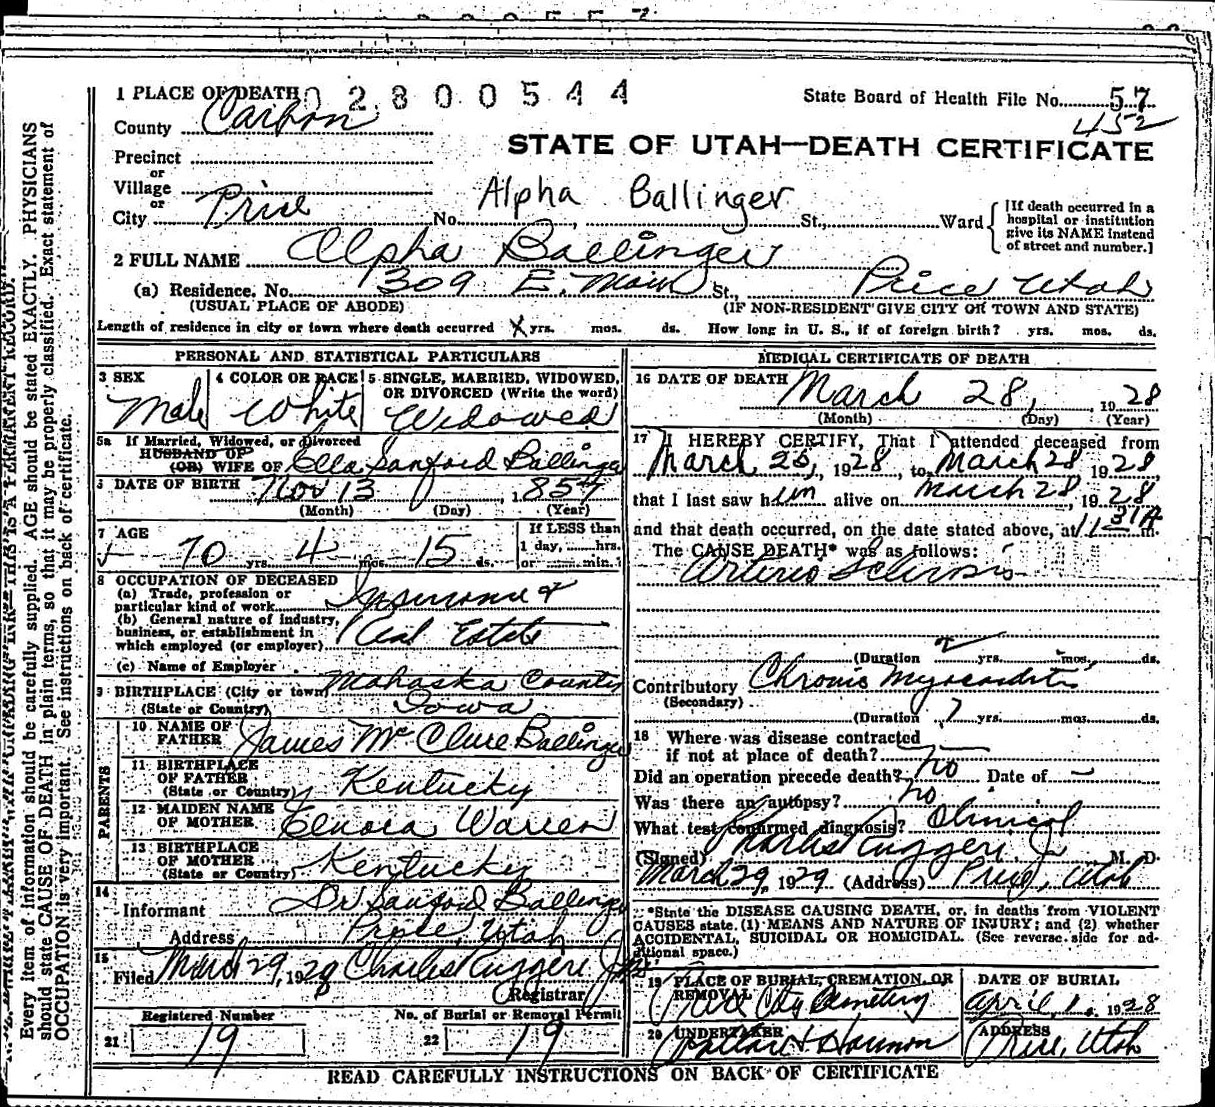 1 PLACE OF DEATH 02800544 State Board of Health File No. 57
452
County Carbon
STATE OF UTAH—DEATH CERTIFICATE
Precinct
or
Village
or
City Price No. Alpha Ballinger St., Ward
[If death occurred in a hospital or institution give its NAME instead of street and number.]
2 FULL NAME Alpha Ballinger
(a) Residence, No. 309 E. Main St., Price Utah
(USUAL PLACE OF ABODE) (IF NON-RESIDENT GIVE CITY OR TOWN AND STATE)
Length of residence in city or town where death occurred X yrs. mos. ds. How long in U. S., if of foreign birth? yrs. mos. ds.
PERSONAL AND STATISTICAL PARTICULARS
3 SEX Male
4 COLOR OR RACE White
5 SINGLE, MARRIED, WIDOWED, OR DIVORCED (Write the word) Widowed
5a If Married, Widowed, or Divorced
HUSBAND OF
(OR) WIFE OF Ella Sanford Ballinger
6 DATE OF BIRTH Nov 13 1857
(Month) (Day) (Year)
7 AGE 70 yrs. 4 mos. 15 ds.
If LESS than
1 day, hrs.
or min.
8 OCCUPATION OF DECEASED
(a) Trade, profession or
particular kind of work Insurance &
(b) General nature of industry,
business, or establishment in
which employed (or employer) Real Estate
(c) Name of Employer
9 BIRTHPLACE (City or town) Mahaska County
(State or Country) Iowa
PARENTS
10 NAME OF
FATHER James McClure Ballinger
11 BIRTHPLACE
OF FATHER
(State or Country) Kentucky
12 MAIDEN NAME
OF MOTHER Elnora Warren
13 BIRTHPLACE
OF MOTHER
(State or Country) Kentucky
14
Informant Dr Sanford Ballinger
Address Price, Utah
15
Filed March 29, 1928 Charles Ruggeri Jr
Registrar
Registered Number
21 19
No. of Burial or Removal Permit
22 19
MEDICAL CERTIFICATE OF DEATH
16 DATE OF DEATH March 28, 1928
(Month) (Day) (Year)
17 I HEREBY CERTIFY, That I attended deceased from
March 25, 1928, to March 28 1928
that I last saw him alive on March 28, 1928
and that death occurred, on the date stated above, at 11 31 A m.
The CAUSE DEATH* was as follows:
Arterio Sclerosis
(Duration yrs. mos. ds.
Contributory Chronic Myocarditis
(Secondary)
(Duration yrs. mos. ds.
18 Where was disease contracted
if not at place of death?
Did an operation precede death? no Date of —
Was there an autopsy? no
What test confirmed diagnosis? Clinical
(Signed) Charles Ruggeri Jr M. D.
March 29, 1929 (Address) Price, Utah
*State the DISEASE CAUSING DEATH, or, in deaths from VIOLENT
CAUSES state (1) MEANS AND NATURE OF INJURY; and (2) whether
ACCIDENTAL, SUICIDAL OR HOMICIDAL. (See reverse side for ad-
ditional space.)
19 PLACE OF BURIAL, CREMATION, OR
REMOVAL Price City Cemetery
DATE OF BURIAL
April 1, 1928
20 UNDERTAKER Wallace & Harmon
ADDRESS
Price, Utah
READ CAREFULLY INSTRUCTIONS ON BACK OF CERTIFICATE
Every item of information should be carefully supplied. AGE should be stated EXACTLY. PHYSICIANS
should state CAUSE OF DEATH in plain terms, so that it may be properly classified. Exact statement of
OCCUPATION is very important. See instructions on back of certificate.